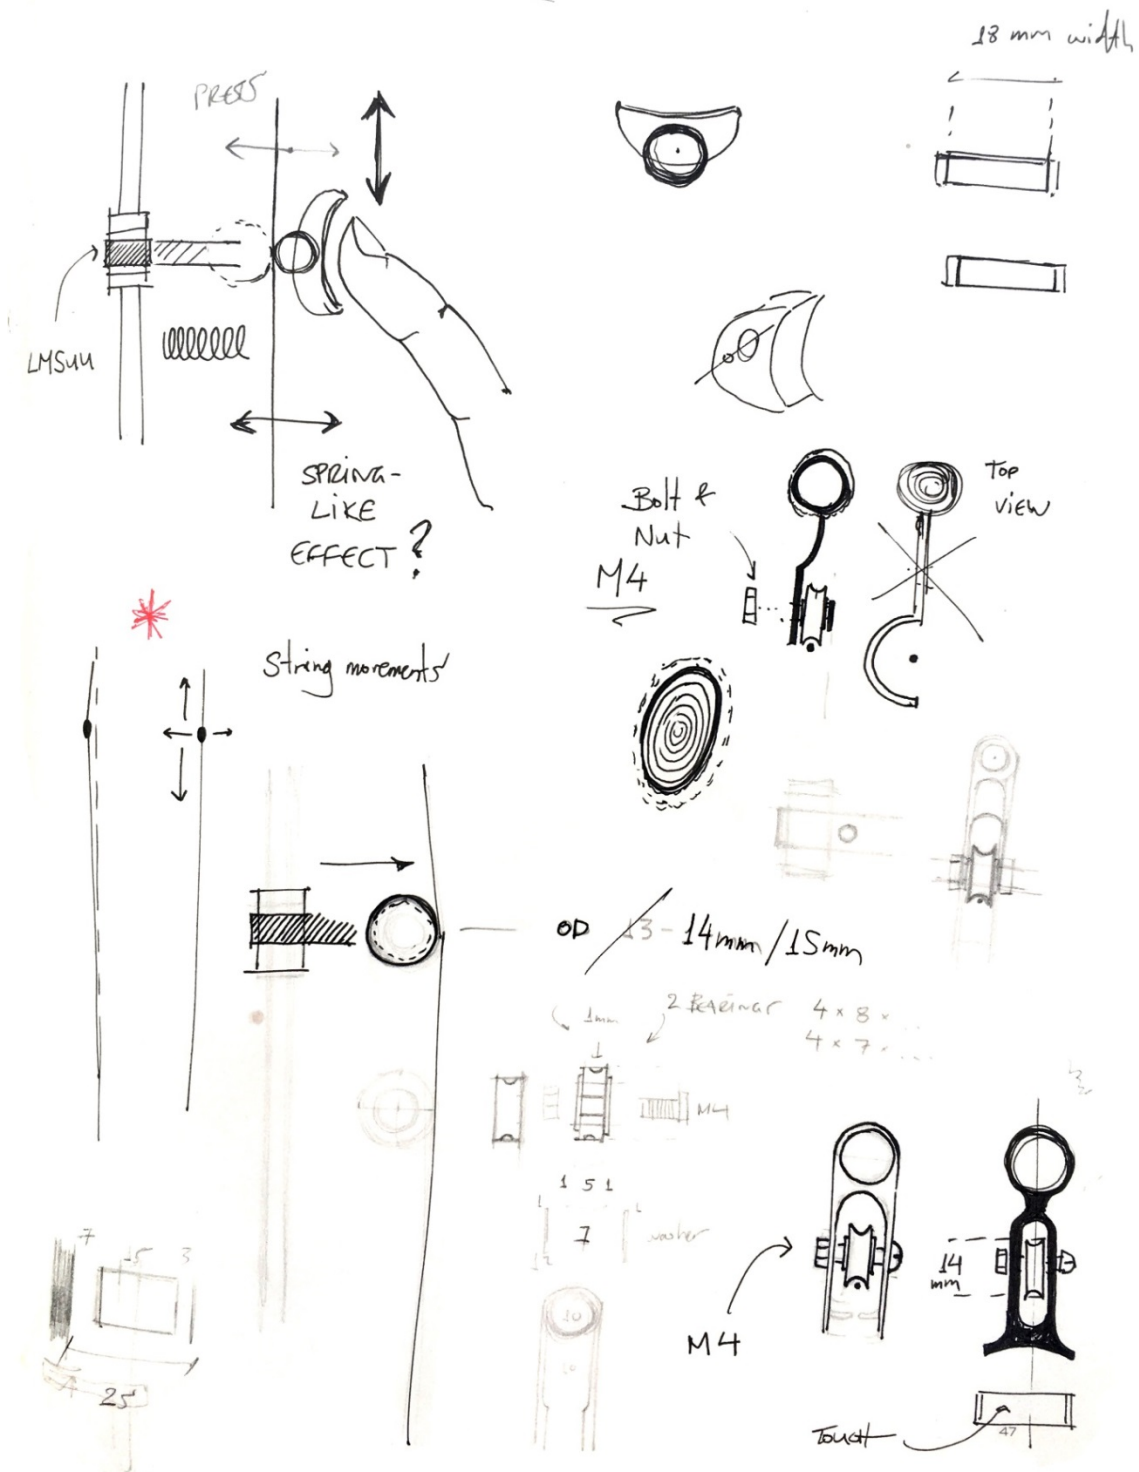 18 mm width
PRESS
LM5UU
SPRING-
LIKE
EFFECT?
Bolt &
Nut
M4
TOP
VIEW
String movements
OD 13 - 14mm/15mm
1mm
2 BEARINGS
4 x 8 x ...
4 x 7 x ...
M4
1 5 1
7
washer
7
15
3
25
10
10
M4
14
mm
TOUCH
47